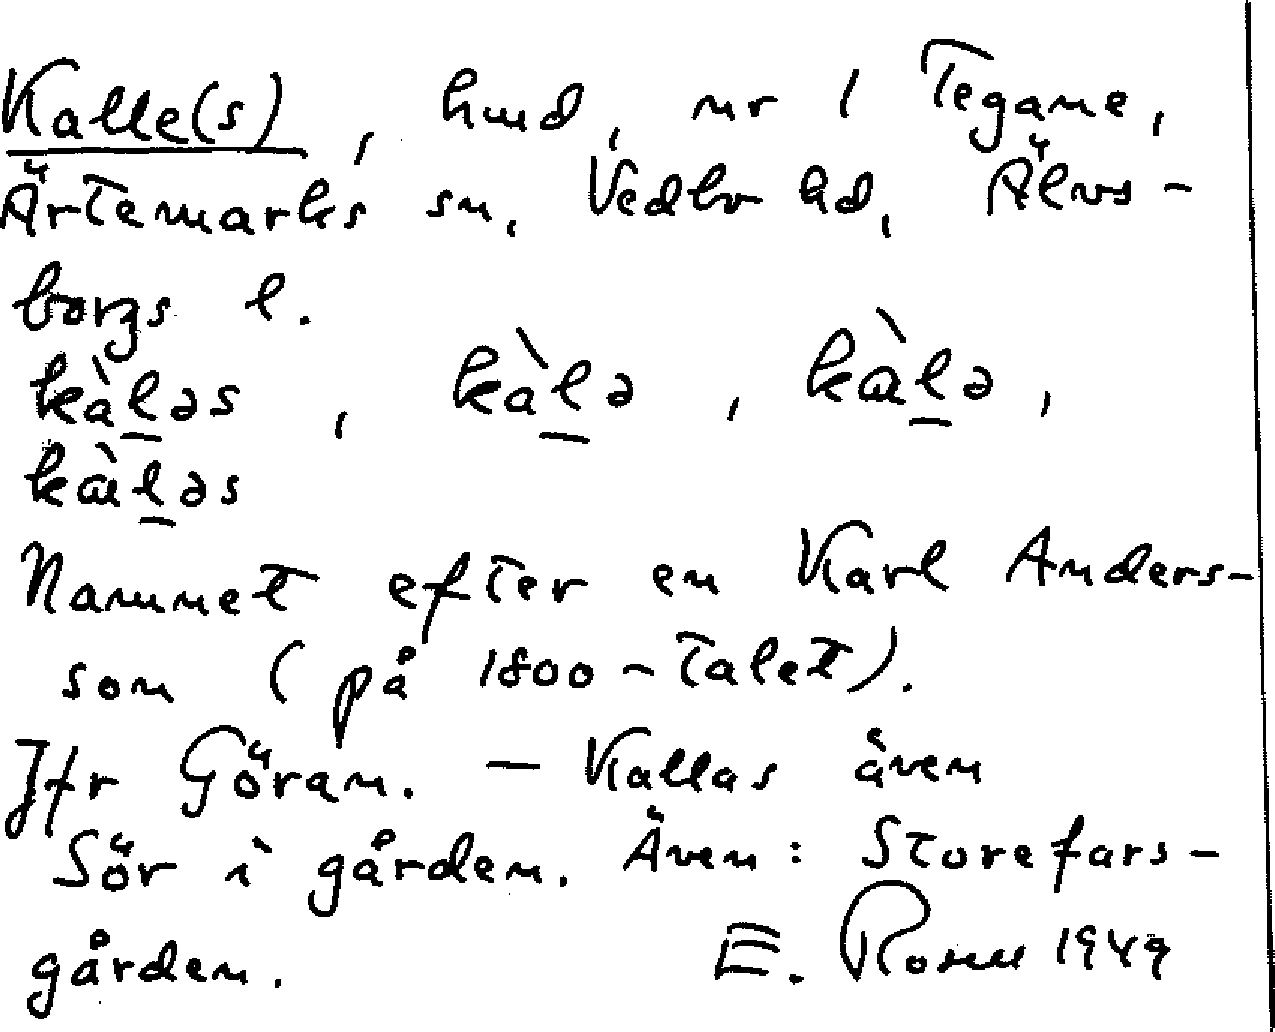 Kalle(s), hmd, nr 1 Tegane,
Ärtemarks sn, Vedbo hd, Älvs-
borgs l.
kàl̠əs, kàl̠ə, kæ̀l̠ə,
kæ̀l̠əs
Namnet efter en Karl Anders-
son (på 1800-talet).
Jfr Göran. — Kallas även
Sör i gården. Även: Storefars-
gården. E. Rosell 1949